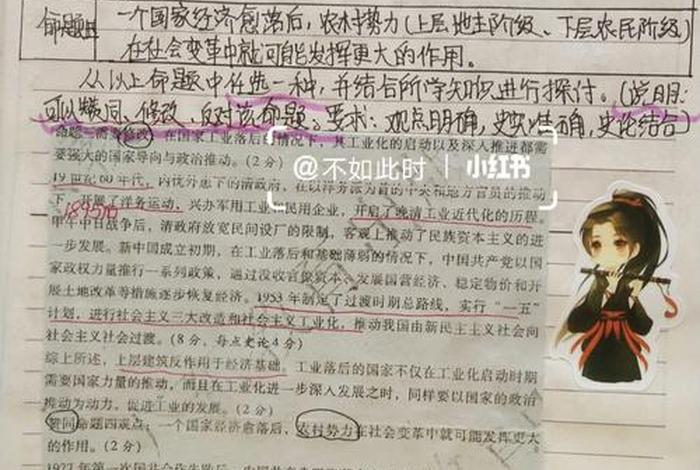 命题四
一个国家经济愈落后,农村势力(上层地主阶级、下层农民阶级)
在社会变革中就可能发挥更大的作用。
从以上命题中任选一种,并结合所学知识进行探讨。(说明:
可以赞同、修改、反对该命题。要求:观点明确,史实准确,史论结合)
命题三需要修改,在国家工业落后的情况下,其工业化的启动以及深入推进都需
要强大的国家导向与政治推动。(2分)
19世纪60年代,内忧外患下的清政府,在以洋务派为首的中央和地方官员的推动
下,开展了洋务运动,兴办军用工业和民用企业,开启了晚清工业近代化的历程。
1895后
甲午中日战争后,清政府放宽民间设厂的限制,客观上推动了民族资本主义的进
一步发展。新中国成立初期,在工业落后和基础薄弱的情况下,中国共产党以国
家政权力量推行一系列政策,通过没收官僚资本、发展国营经济、稳定物价和开
展土地改革等措施逐步恢复经济。1953年制定了过渡时期总路线,实行“一五”
计划,进行社会主义三大改造和社会主义工业化,推动我国由新民主主义社会向
社会主义社会过渡。(8分,每点史论4分)
综上所述,上层建筑反作用于经济基础。工业落后的国家不仅在工业化启动时期
需要国家力量的推动,而且在工业化进一步深入发展之时,同样要以国家的政治
推动为动力,促进工业的发展。(2分)
赞同命题四观点:一个国家经济愈落后,农村势力在社会变革中就可能发挥更大
的作用。(2分)
1927年第一次国共合作失败后,
@不如此时 | 小红书